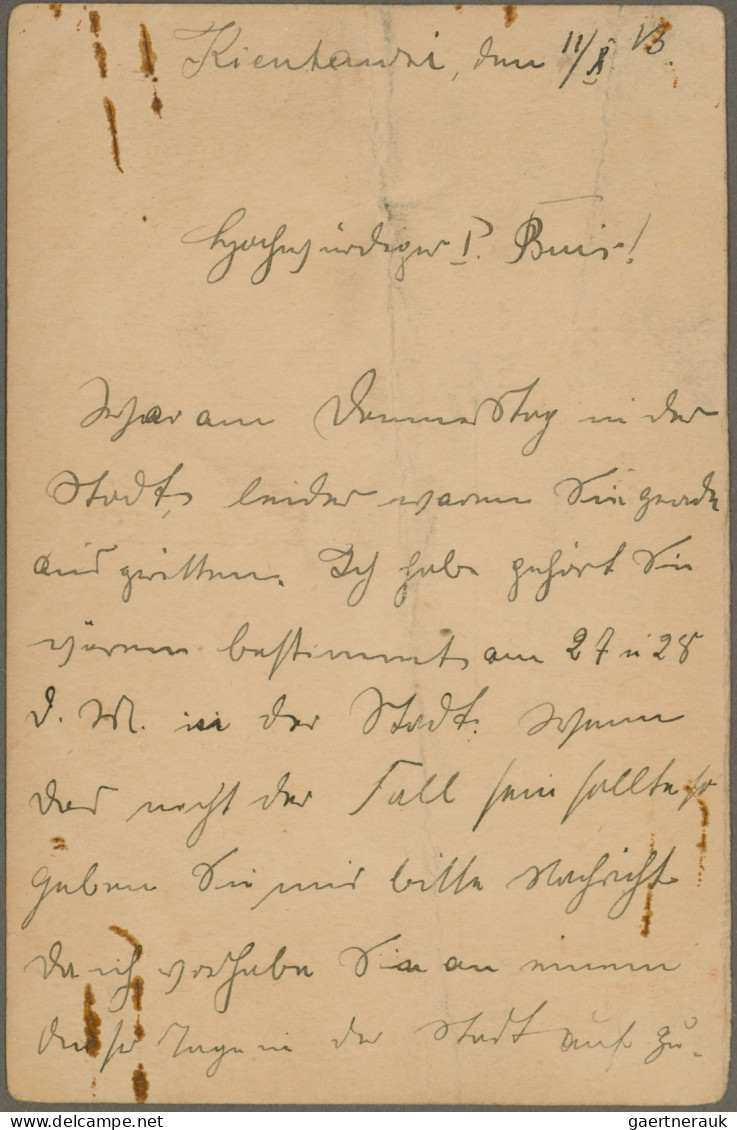 Kientauri, den 11/X 13.
Hochwürdiger P. Buis!
War am Donnerstag in der
Stadt, leider waren Sie gerade
ausgeritten. Ich habe gehört Sie
wären bestimmt am 27 u 28
d. M. in der Stadt. Wenn
das nicht der Fall sein sollte so
geben Sie mir bitte Nachricht
da ich vorhabe Sie an einem
dieser Tage in der Stadt auf zu-
gaertnerauk.com